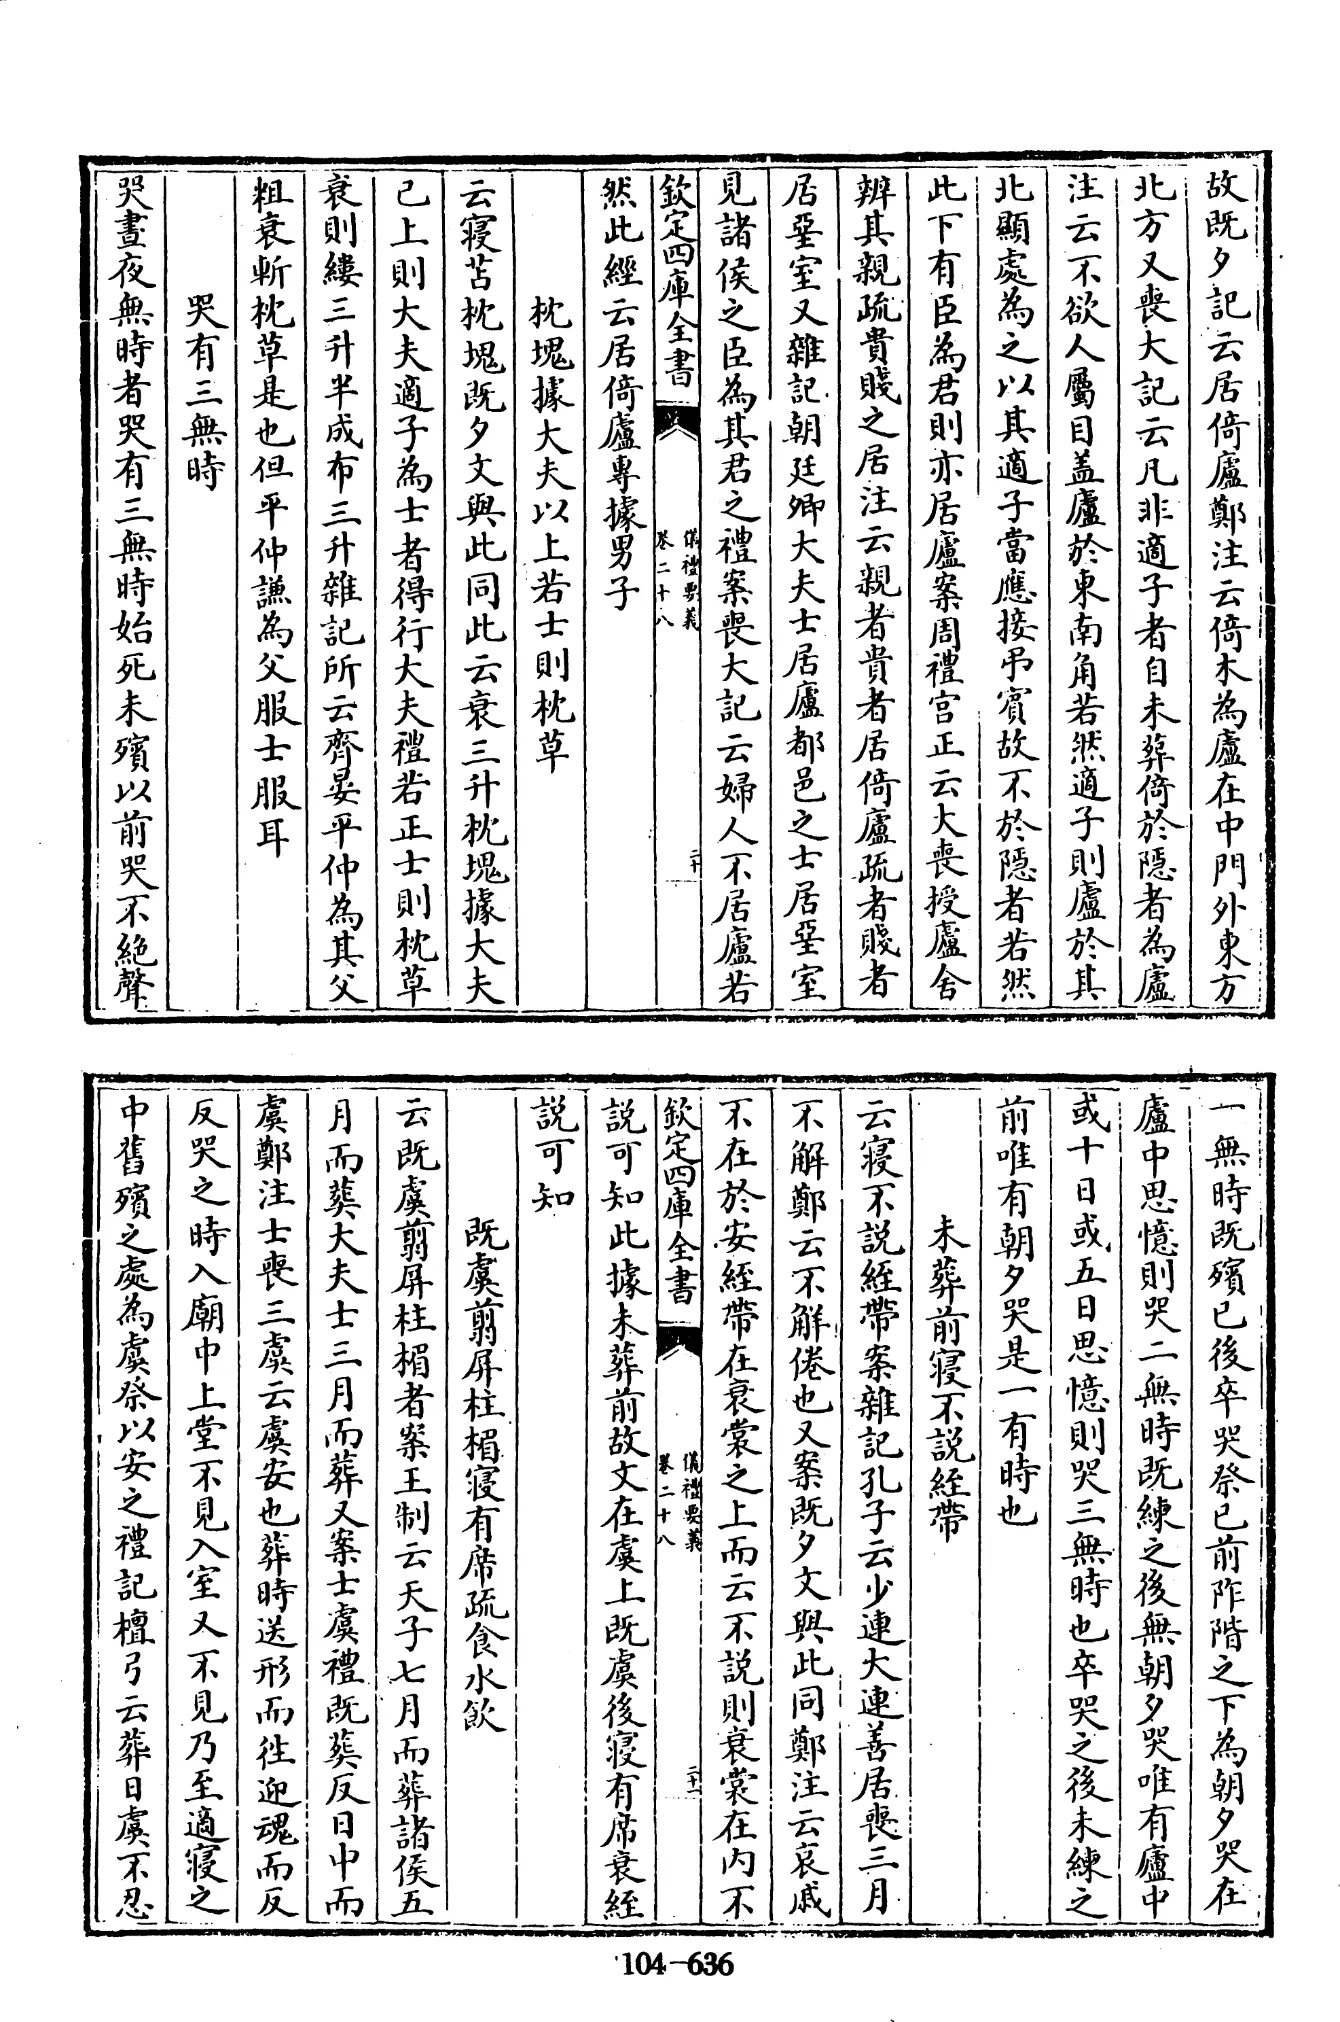 故既夕記云居倚廬鄭注云倚木為廬在中門外東方
北方又喪大記云凡非適子者自未葬倚於隱者為廬
注云不欲人屬目蓋廬於東南角若然適子則廬於其
北顯處為之以其適子當應接弔賓故不於隱者若然
此下有臣為君則亦居廬案周禮宮正云大喪授廬舍
辨其親疏貴賤之居注云親者貴者居倚廬疏者賤者
居堊室又雜記朝廷卿大夫士居廬都邑之士居堊室
見諸侯之臣為其君之禮案喪大記云婦人不居廬若
欽定四庫全書
儀禮要義
卷二十八
二十
然此經云居倚廬專據男子
枕塊據大夫以上若士則枕草
云寢苫枕塊既夕文與此同此云衰三升枕塊據大夫
已上則大夫適子為士者得行大夫禮若正士則枕草
衰則縷三升半成布三升雜記所云齊晏平仲為其父
粗衰斬枕草是也但平仲謙為父服士服耳
哭有三無時
哭晝夜無時者哭有三無時始死未殯以前哭不絶聲
一無時既殯已後卒哭祭已前阼階之下為朝夕哭在
廬中思憶則哭二無時既練之後無朝夕哭唯有廬中
或十日或五日思憶則哭三無時也卒哭之後未練之
前唯有朝夕哭是一有時也
未葬前寢不説絰帶
云寢不説絰帶案雜記孔子云少連大連善居喪三月
不解鄭云不解倦也又案既夕文與此同鄭注云哀戚
不在於安絰帶在衰裳之上而云不説則衰裳在内不
欽定四庫全書
儀禮要義
卷二十八
二十一
説可知此據未葬前故文在虞上既虞後寢有席衰絰
説可知
既虞翦屏柱楣寢有席疏食水飲
云既虞翦屏柱楣者案王制云天子七月而葬諸侯五
月而葬大夫士三月而葬又案士虞禮既葬反日中而
虞鄭注士喪三虞云虞安也葬時送形而往迎魂而反
反哭之時入廟中上堂不見入室又不見乃至適寢之
中舊殯之處為虞祭以安之禮記檀弓云葬日虞不忍
104-636